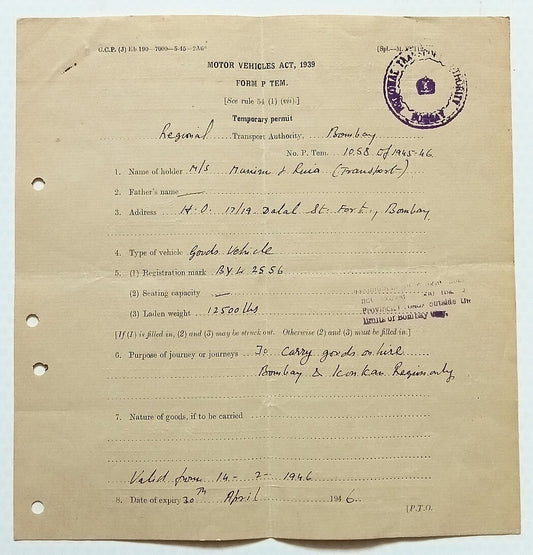 G.C.P. (J) Eb 190—7000—5-45—2A6*
MOTOR VEHICLES ACT, 1939
FORM P TEM.
[See rule 54 (1) (vii).]
Temporary permit
Regional Transport Authority, Bombay
No. P. Tem. 1058 of 1945-46
1. Name of holder M/S (Transport)
2. Father's name —
3. Address H.O. 17/19 Dalal St. Fort, Bombay
4. Type of vehicle Goods Vehicle
5. (1) Registration mark BYH 2556
(2) Seating capacity —
(3) Laden weight 12500 lbs
outside the
limits of Bombay
[If (1) is filled in, (2) and (3) may be struck out. Otherwise (2) and (3) must be filled in.]
6. Purpose of journey or journeys To carry goods on hire
Bombay & Konkan Region only
7. Nature of goods, if to be carried
Valid from 14-2-1946
8. Date of expiry 30th April 1946.
[P.T.O.